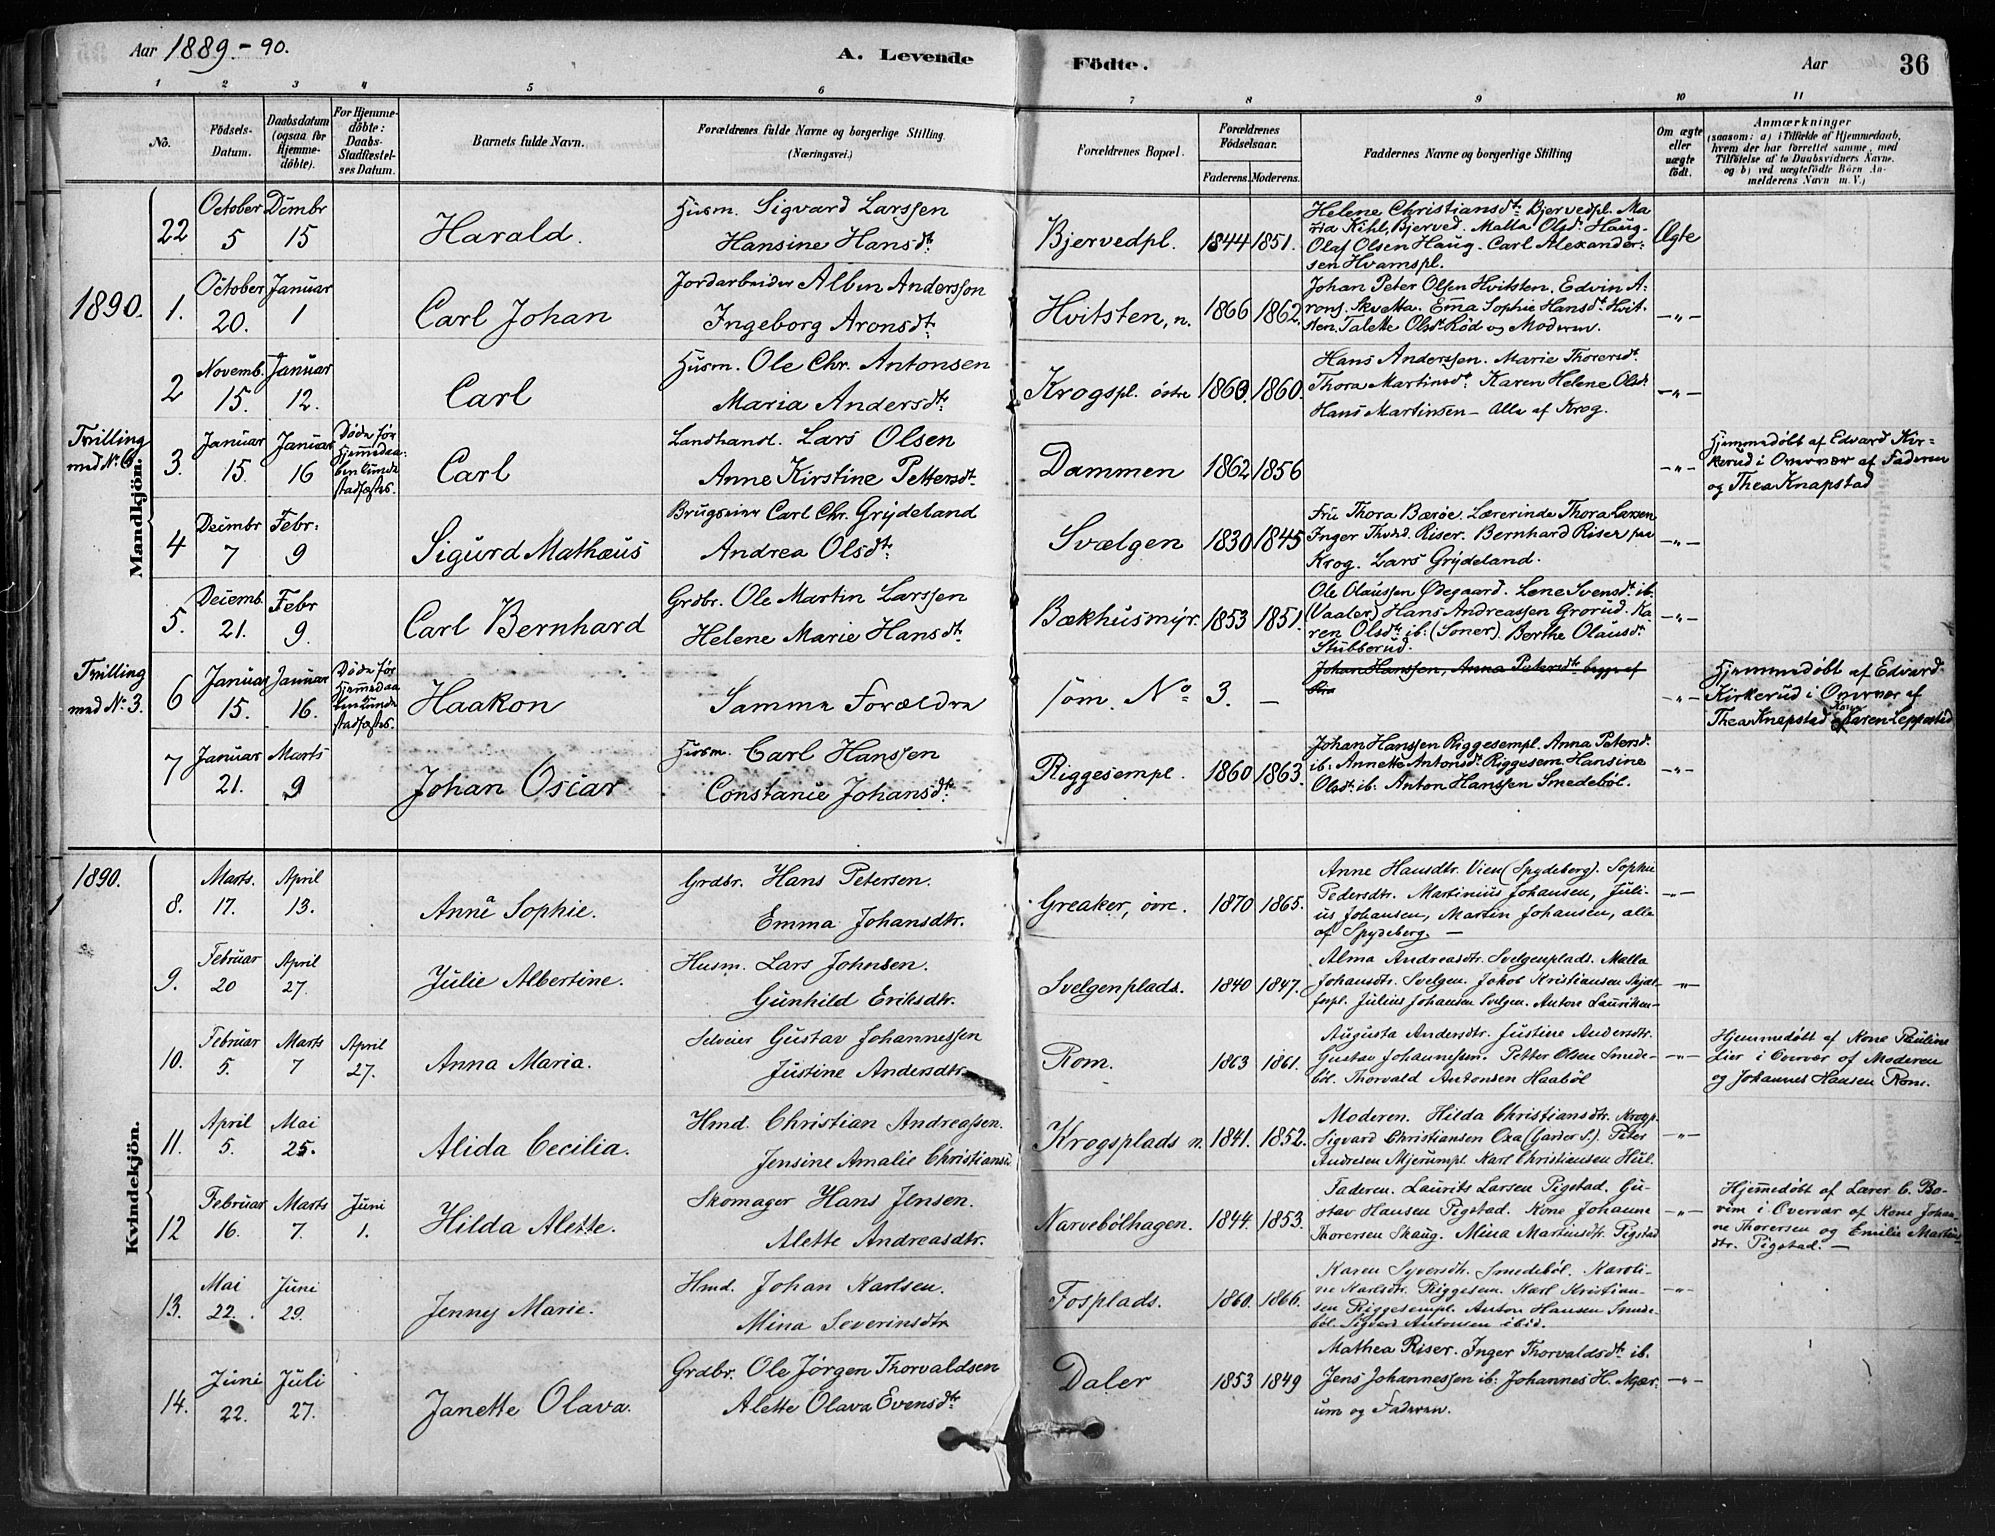 Aar 1889-90.
A. Levende Födte.
Aar
36
1 2 3 4 5 6 7 8 9 10 11
No.
Födsels-Datum.
Daabsdatum (ogsaa for Hjemmedöbte).
For Hjemmedöbte: Daabs-Stadfæstelses Datum.
Barnets fulde Navn.
Forældrenes fulde Navne og borgerlige Stilling. (Næringsvei.)
Forældrenes Bopæl.
Forældrenes Födselsaar.
Faderens. Moderens.
Faddernes Navne og borgerlige Stilling
Om ægte eller uægte födt.
Anmærkninger
(saasom: a) i Tilfælde af Hjemmedaab, hvem der har forrettet samme, med Tilföielse af to Daabsvidners Navne. og b) ved uægtefödte Börn Anmelderens Navn m. V.)
Mandkjön.
22
October 5
Decmbr 15
Harald.
Husm. Sigvard Larssen
Hansine Hansdtr
Bjervedpl.
1844 1851.
Helene Christiansdtr Bjervedpl. Ma-
ria Kihl, Bjerved. Malla Olsdtr Haug-
Olaf Olsen Haug. Carl Alexander-
sen Hvamspl.
Ægte
1890.
1.
October 20.
Januar 1
Carl Johan
Jordarbeider Albin Anderssen
Ingeborg Aronsdtr
Hvitsten, n.
1866 1862.
Johan Peter Olsen Hvitsten. Edvin A-
rons. Skvetta. Ema Sophie Hansdtr Hvit-
sten. Talette Olsdtr Rød og Moderen.
-"-
2
Novemb. 15.
Januar 12.
Carl
Husm. Ole Chr. Antonsen
Maria Andersdtr
Krogspl. østre
1860. 1860.
Hans Anderssen. Marie Thorersdtr.
Thora Martinsdtr Karen Helene Olsdtr
Hans Martinsen - Alle af Krog.
-"-
Tvilling med No 6
3.
Januar 15.
Januar 16
Døde før Hjemmedaaben kunde stadfæstes.
Carl
Landhandl. Lars Olsen
Anne Kirstine Pettersdtr
Dammen
1862 1856
-"-
Hjemmedøbt af Edvard Kir-
kerud i Overvær af Faderen
og Thea Knapstad
4
Decmbr 7
Febr: 9
Sigurd Mathæus
Brugseier Carl Chr. Grýdeland
Andrea Olsdtr
Svælgen
1830 1845
Fru Thora Bærøe. Lærerinde Thora Larsen
Inger Thvsd. Riser. Bernhard Riser paa
Krog. Lars Grýdeland.
-"-
5.
Decemb. 21.
Febr 9.
Carl Bernhard
Grdbr. Ole Martin Larssen
Helene Marie Hansdtr
Bækhusmýr.
1853 1851.
Ole Olaussen Ødegaard. Lene Svensdtr ib.
(Vaaler) Hans Andreassen Grorud. Ka-
ren Olsdtr ib: (Soner). Berthe Olausdtr
Stubberud.
-"-
Tvilling med No 3.
6
Januar 15.
Januar 16.
Døde før Hjemmedaaben kunde stadfæstes.
Haakon
Samme Forældre
som No 3. -
Johan Hanssen, Anna Petersdtr begge af
-"-
Hjemmedøbt af Edvard
Kirkerud i Overvær af
Thea Knapstad og Karen Leppestad
7
Januar 21.
Marts 9
Johan Oscar
Husm. Carl Hanssen
Constance Johansdtr
Riggesempl.
1860 1863.
Johan Hanssen Riggesempl. Anna Petersd.
ib. Annette Antonsdtr Riggesem. Hansine
Olsdtr ib: Anton Hanssen Smedebøl.
-"-
1890.
Kvindekjön.
8.
Marts. 17.
April 13.
Anna Sophie.
Grdbr. Hans Petersen.
Emma Johansdtr.
Greaker, øvre.
1870 1865.
Anne Hansdtr. Vien (Spydeberg). Sophie
Pedersdtr. Martinius Johansen, Juli-
us Johansen, Martin Johansen, alle
af Spydeberg. -
-"-
9.
Februar 20
April 27.
Julie Albertine.
Husm. Lars Johnsen.
Gunhild Eriksdtr.
Svelgenplads.
1840 1847.
Alma Andreasdtr. Svelgenplads. Malla
Johansdtr. Svelgen. Jakob Kristiansen
Julius Johansen Svelgen. Anton
-"-
10.
Februar 5.
Marts 7
April 27.
Anna Maria.
Selveier Gustav Johannessen
Justine Andersdtr.
Rom.
1863 1861.
Augusta Andersdtr. Justine Andersdtr.
Gustav Johannessen. Petter Olsen Smede-
bøl. Thorvald Antonsen Haabøl
-"-
Hjemmedøbt af Kone Pauline
Lier i Overvær af Moderen
og Johannes Hansen Rom.
11.
April 5.
Mai 25.
Alida Cecilia.
Hmd. Christian Andreassen.
Jensine Amalie Christiansd
Krogsplads n.
1841. 1852.
Moderen. Hilda Christiansdtr. Krogp.
Sigvard Christiansen Oxa (Garder S.). Peter
Andresen Mjerumpl. Karl Christiansen Hul.
-"-
12
Februar 16.
Marts 7.
Juni 1.
Hilda Alette.
Skomager Hans Jensen.
Alette Andreasdtr.
Narvebølhagen.
1844. 1853.
Faderen. Laurits Larsen Pigstad. Gu-
stav Hansen Pigstad. Kone Johanne
Thorersen Skaug. Mina Martinsdtr. Pigstad
-"-
Hjemmedøbt af Lærer C. Bo-
vim i Overvær af Kone Johan-
ne Thorersen og Emilie Martins-
dtr. Pigstad. -
13.
Mai 22.
Juni 29.
Jenny Marie.
Hmd. Johan Karlsen.
Mina Severinsdtr
Fosplads.
1860. 1866.
Karen Syversdtr. Smedebøl. Karoli-
ne Karlsdtr. Riggesem. Karl Kristian-
sen Riggesempl. Anton Hansen Smede-
bøl. Sigvard Antonsen ibid.
-"-
14.
Juni 22.
Juli 27.
Janette Olava.
Grdbr. Ole Jørgen Thorvaldsen
Alette Olava Evensdtr
Daler
1853 1849
Mathea Riser. Inger Thorvaldsdtr ib.
Jens Johannessen ib: Johannes H. Mjær-
um og Faderen.
-"-